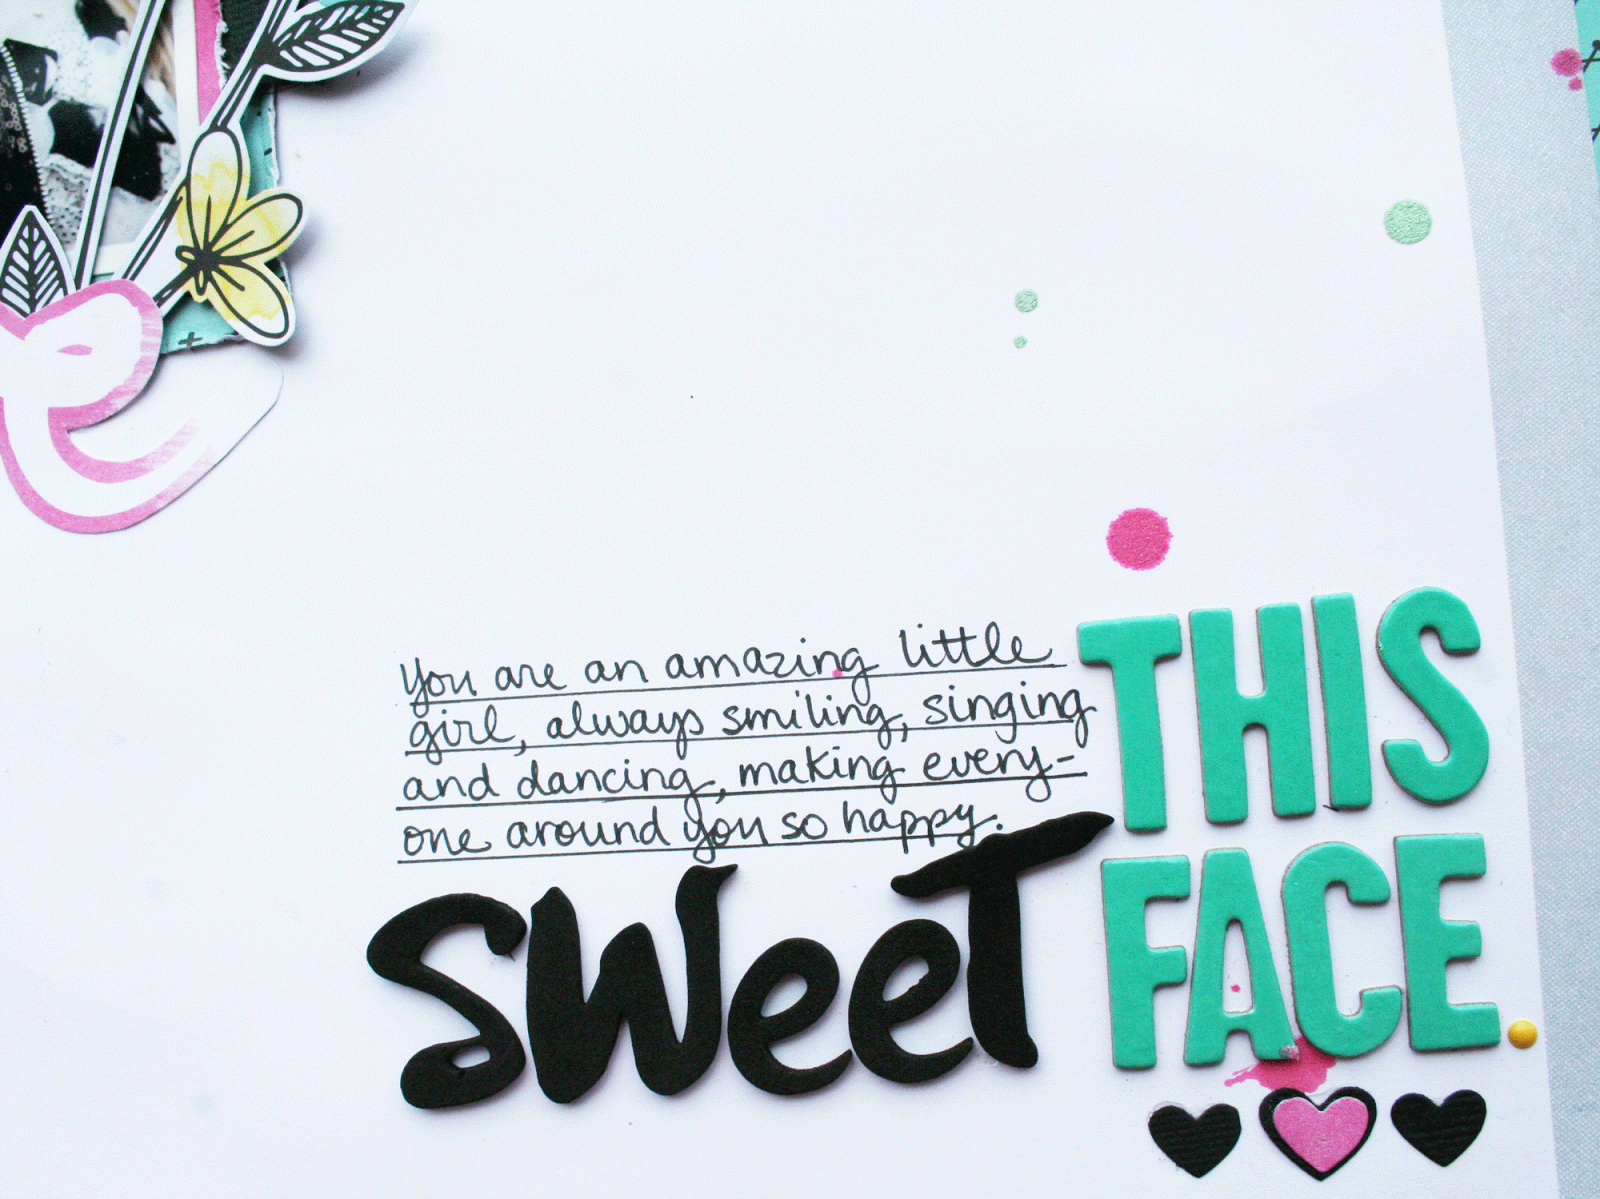 You are an amazing little
girl, always smiling, singing
and dancing, making every-
one around you so happy.
THIS
SWeeT FACE.